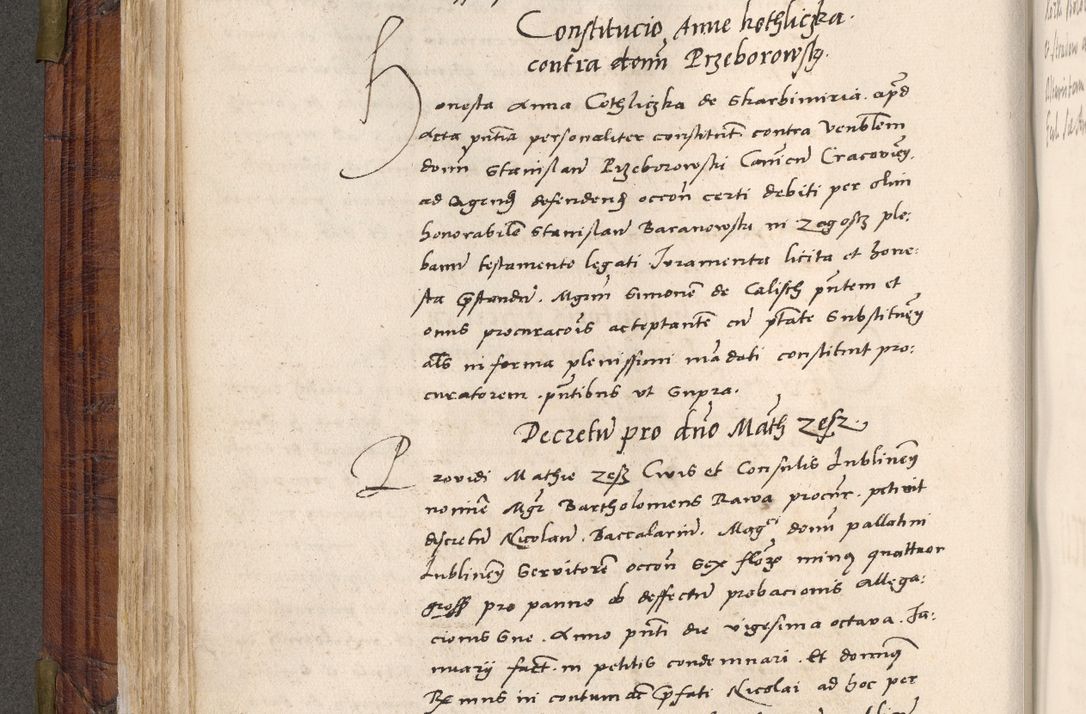 Constitucio Anne kothliczka.
contra dom̄ Przeborowskj.
Honesta Anna Cothliczka de Skarbimiria. apd̄
Acta pn̄tia personaliter constitut̄ contra Venblem
dom̄ Stanislaū Przeborowski Canicū Cracovieñ.
ad Agend̄ defendend̄ occoñ certi debiti per olim
honorabilē Stanislaū Baranowski in Zagosz ple:
banū testamento legati Iuramenta licita et hone:
sta p̄standū. Mgrm̄ Simonē de Calisch pn̄tem et
onus procuracois acceptantē cū ptāte Substituen̄
als in forma plenissimi mādati constituit pro:
curatorem. pn̄tibus vt Supra.
Decretū pro dn̄o Math Zesz
Providi Mathie Zesz Civis et Consulis Lublineñ
nomine Mgr Bartholomeus Rawa procur. petivit
discretū Nicolaū. Baccalariū. Magci domi pallatini
Lublineñ Servitorē occoñ Sex florz minꝫ quattuor
gross pro panno ob deffectū probacionis Allega:
cionis Sue. Anno pn̄ti die vigesima octava. Ja:
nuarij fact. in petitis condemnari. Et dominꝫ
Rx nus in contumac p̄fati Nicolai ad hoc per